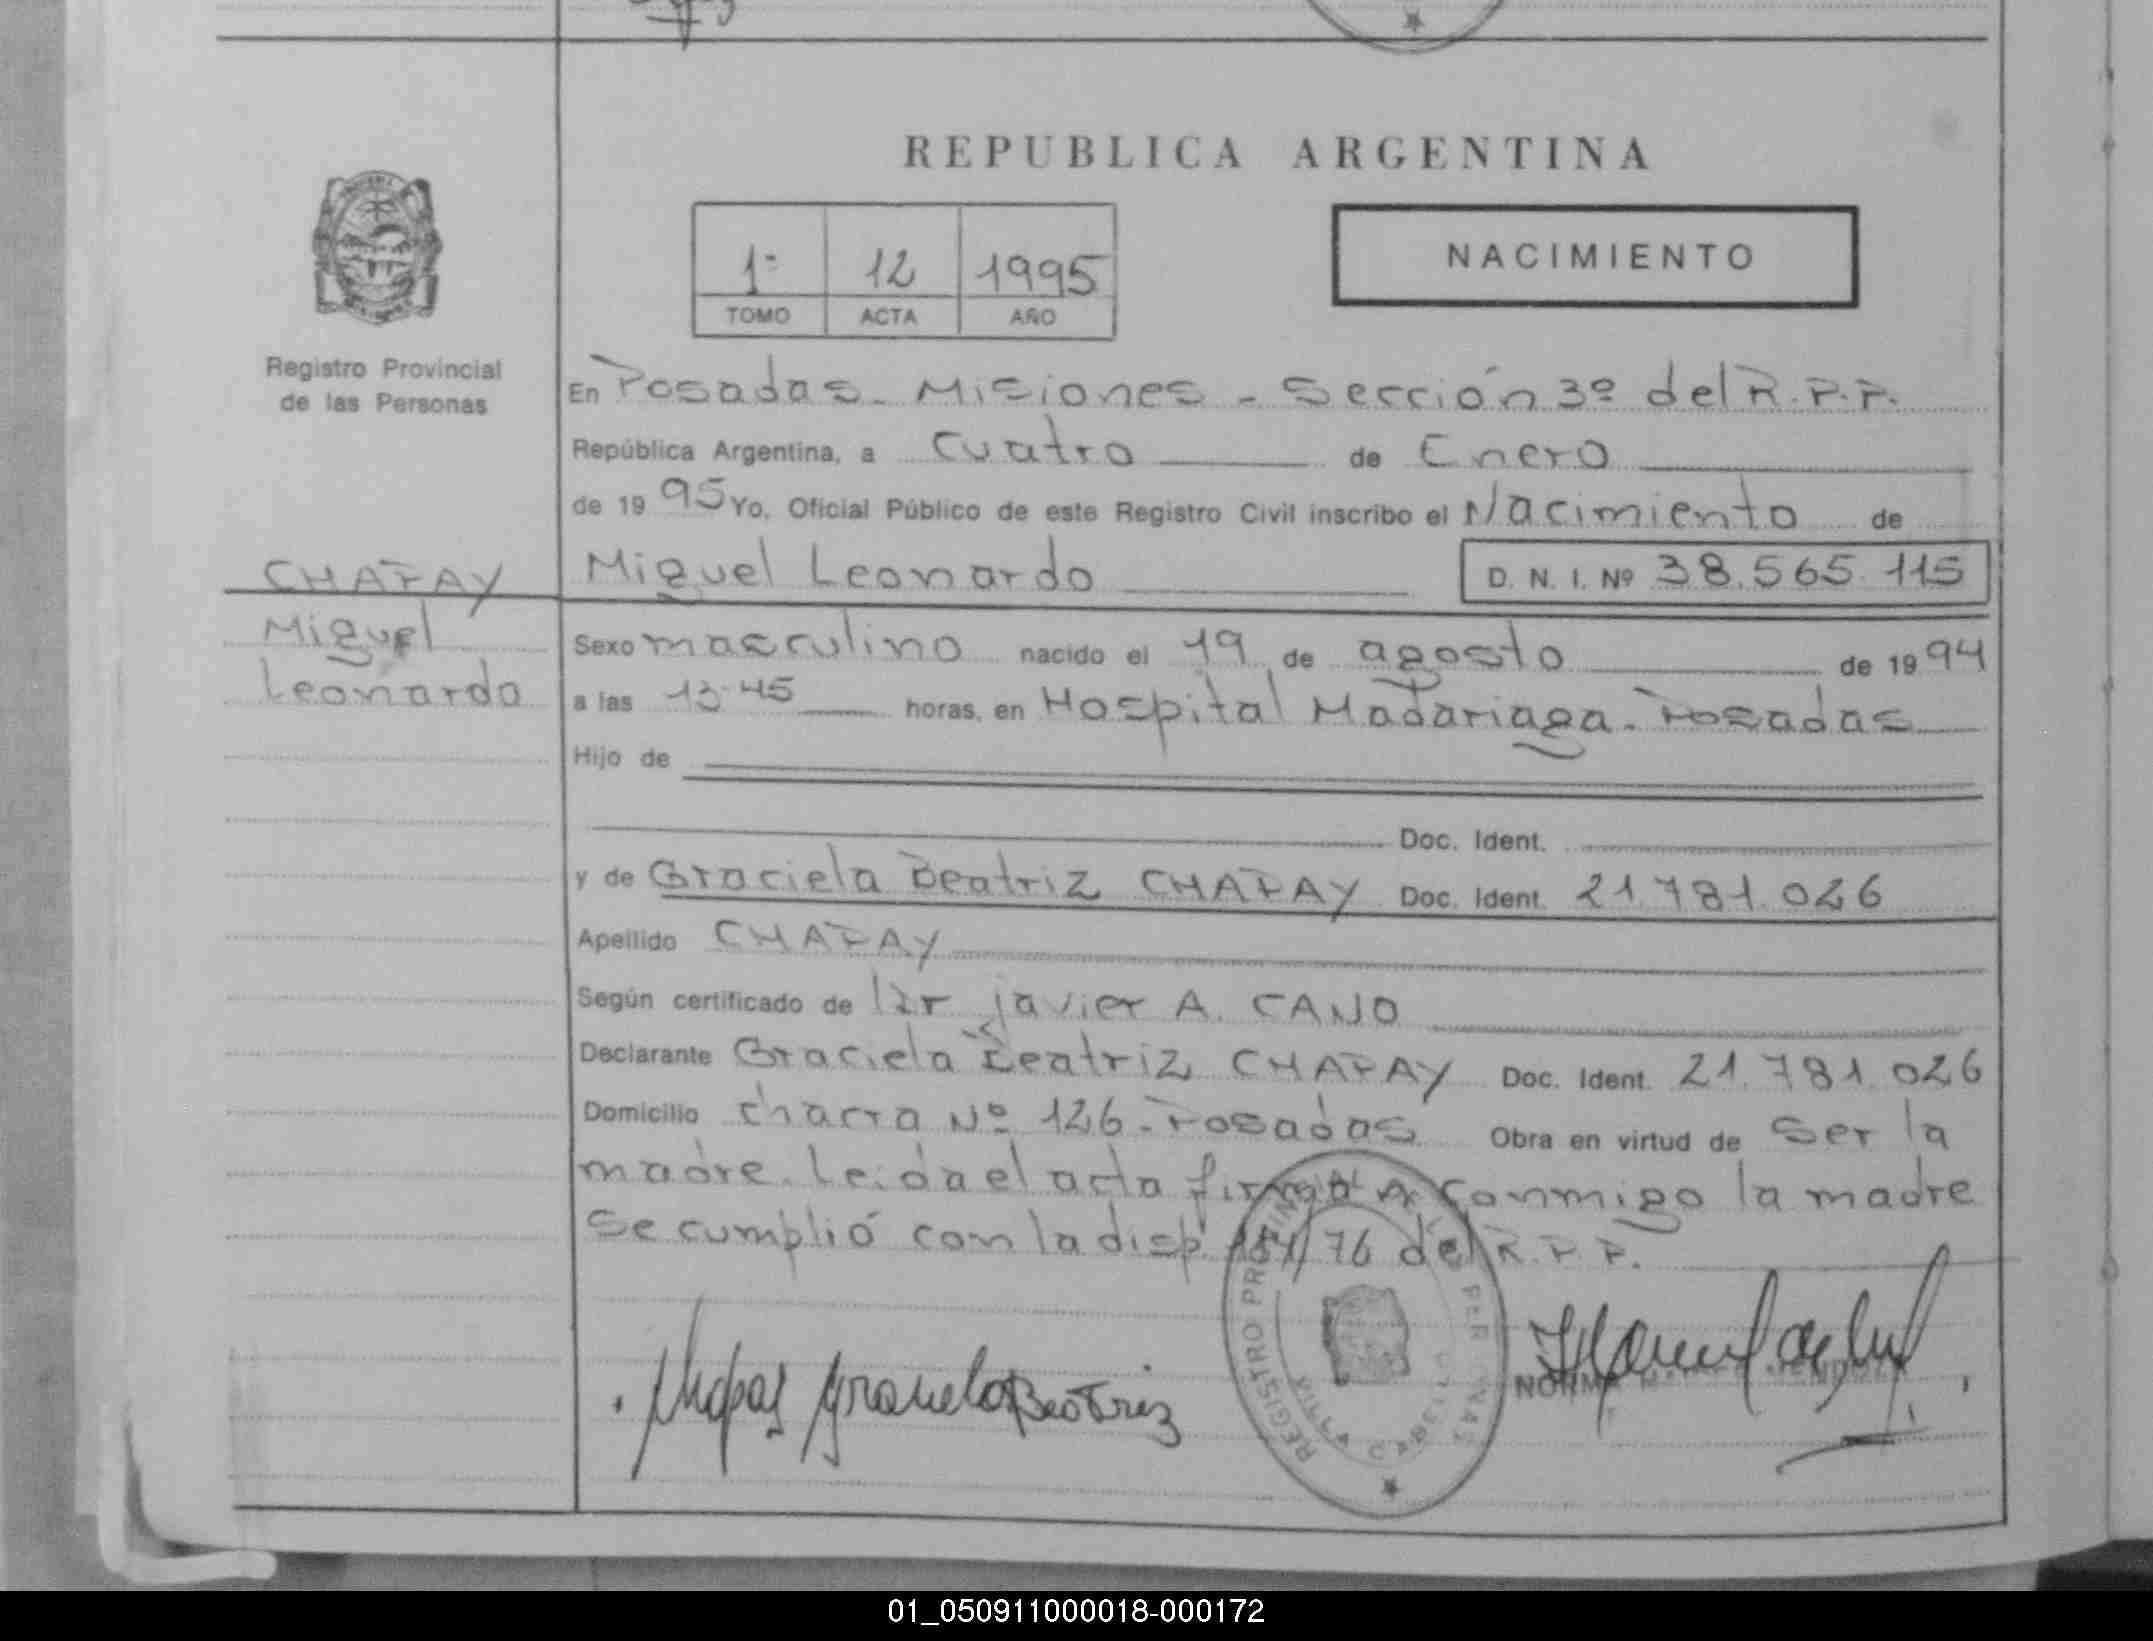 REPUBLICA ARGENTINA
1º 12 1995
TOMO ACTA AÑO
NACIMIENTO
Registro Provincial
de las Personas
En Posadas - Misiones - Sección 3º del R.P.P.
República Argentina, a cuatro de Enero
de 19 95 Yo, Oficial Público de este Registro Civil inscribo el Nacimiento de
CHAPAY
Miguel
Leonardo
Miguel Leonardo D. N. I. Nº 38.565.115
Sexo masculino nacido el 19 de agosto de 19 94
a las 13:45 horas, en Hospital Madariaga - Posadas
Hijo de
Doc. Ident.
y de Graciela Beatriz CHAPAY Doc. Ident. 21.781.026
Apellido CHAPAY
Según certificado de Dr Javier A. CANO
Declarante Graciela Beatriz CHAPAY Doc. Ident. 21.781.026
Domicilio chacra Nº 126 - Posadas Obra en virtud de ser la
madre. Leida el acta firma conmigo la madre
Se cumplió con la disp 184/76 del R.P.P.
Graciela Beatriz
REGISTRO PROVINCIAL
NORMA
01_050911000018-000172